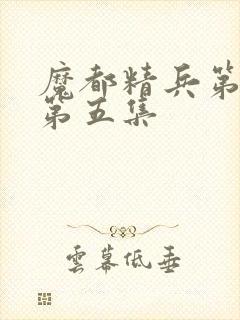 魔都精兵第
第五集
雲幕低垂